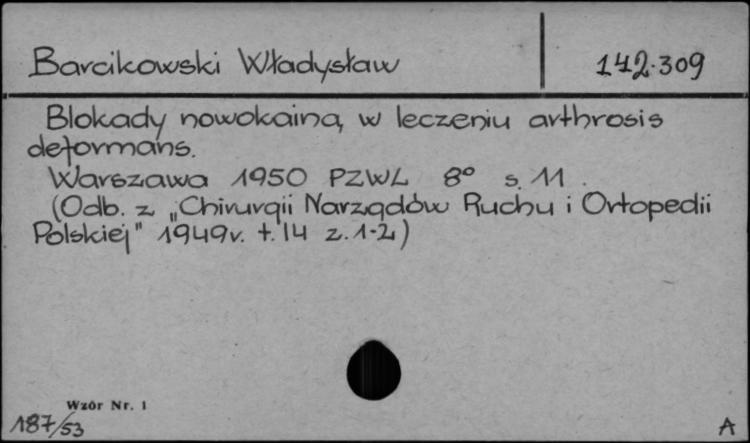 Barcikowski Władysław
142.309
Blokady nowokainą w leczeniu arthrosis
deformans.
Warszawa 1950 PZWL 8° s. 11.
(Odb. z „Chirurgii Narządów Ruchu i Ortopedii
Polskiej" 1949r. t. 14 z. 1-2)
Wzór Nr. 1
187/53
A